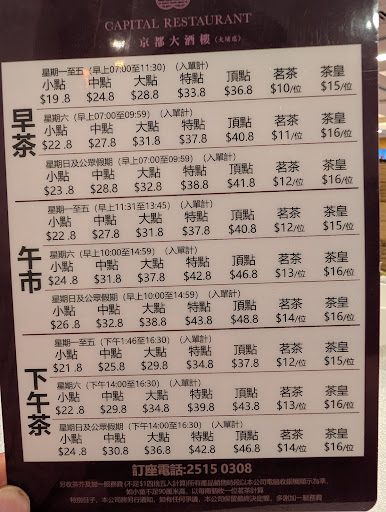 CAPITAL RESTAURANT
京都大酒樓(太埔店)
早茶
星期一至五 (早上07:00至11:30) (入單計)
小點 中點 大點 特點 頂點 茗茶 茶皇
$19.8 $24.8 $28.8 $33.8 $36.8 $10/位 $15/位
星期六 (早上07:00至09:59) (入單計)
小點 中點 大點 特點 頂點 茗茶 茶皇
$22.8 $27.8 $31.8 $37.8 $40.8 $11/位 $16/位
星期日及公眾假期 (早上07:00至09:59) (入單計)
小點 中點 大點 特點 頂點 茗茶 茶皇
$23.8 $28.8 $32.8 $38.8 $41.8 $12/位 $16/位
午市
星期一至五 (早上11:31至13:45) (入單計)
小點 中點 大點 特點 頂點 茗茶 茶皇
$22.8 $27.8 $31.8 $37.8 $40.8 $12/位 $16/位
星期六 (早上10:00至14:59) (入單計)
小點 中點 大點 特點 頂點 茗茶 茶皇
$24.8 $31.8 $37.8 $42.8 $46.8 $13/位 $16/位
星期日及公眾假期 (早上10:00至14:59) (入單計)
小點 中點 大點 特點 頂點 茗茶 茶皇
$26.8 $32.8 $38.8 $43.8 $48.8 $14/位 $16/位
下午茶
星期一至五 (下午1:46至16:30) (入單計)
小點 中點 大點 特點 頂點 茗茶 茶皇
$21.8 $25.8 $29.8 $34.8 $37.8 $12/位 $15/位
星期六 (下午14:00至16:30) (入單計)
小點 中點 大點 特點 頂點 茗茶 茶皇
$22.8 $29.8 $34.8 $39.8 $43.8 $13/位 $16/位
星期日及公眾假期 (下午14:00至16:30) (入單計)
小點 中點 大點 特點 頂點 茗茶 茶皇
$24.8 $30.8 $36.8 $42.8 $46.8 $14/位 $16/位
訂座電話:2515 0308
另收茶芥及加一服務費(不足$1四捨五入計算)/所有產品銷售時格以本公司電腦收銀機顯示為準,
如小童不足90厘米高, 以每兩個收一位茗茶計算
特別日子, 本公司將另行通知, 如有任何爭議, 本公司保留最終決定權, 多謝加一服務費